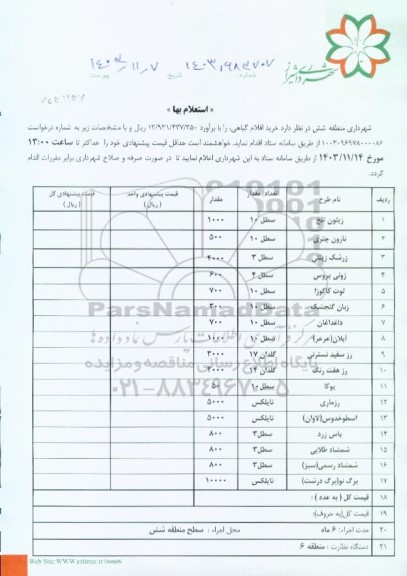 شهرداری شیراز
شماره ۱۴۰۳,۹۸۴۷۰۷ تاریخ ۱۴۰۳,۱۱,۷ پیوست
« استعلام بها »
شهرداری منطقه شش در نظر دارد خرید اقلام گیاهی، را با برآورد ۱۲/۹۲۱/۴۳۷/۳۵۰ ریال و با مشخصات زیر به شماره درخواست
۱۰۰۳۰۹۶۹۷۸۰۰۰۰۸۶ از طریق سامانه ستاد اقدام نماید. خواهشمند است حداقل قیمت پیشنهادی خود را حداکثر تا ساعت ۱۳:۰۰
مورخ ۱۴۰۳/۱۱/۱۴ از طریق سامانه ستاد به این شهرداری اعلام نمایید تا در صورت صرفه و صلاح شهرداری برابر مقررات اقدام
گردد.
ردیف نام طرح تعداد/ مقدار مقدار قیمت پیشنهادی واحد (ریال) قیمت پیشنهادی کل (ریال)
۱ زیتون تلخ سطل ۱۰ ۱۰۰۰
۲ نارون چتری سطل ۱۰ ۵۰۰
۳ زرشک زینتی سطل ۳ ۴۰۰۰
۴ رونی پروس سطل ۴ ۶۰۰
۵ توت کاکوزا سطل ۱۰ ۷۰۰
۶ زبان گنجشک سطل ۱۰ ۳۰۰
۷ داغداغان سطل ۱۰ ۷۰۰
۸ ایلان(عرعر) سطل ۱۰
۹ رز سفید نسترنی گلدان ۱۷ ۳۰۰۰
۱۰ رز هفت رنگ گلدان ۱۴ ۳۰۰۰
۱۱ یوکا سطل ۱۰ ۵۰
۱۲ رزماری نایلکس ۵۰۰۰
۱۳ اسطوخدوس(لاوان) نایلکس ۵۰۰۰
۱۴ یاس زرد سطل۳ ۸۰۰
۱۵ شمشاد طلایی سطل۳ ۸۰۰
۱۶ شمشاد رسمی(سبز) سطل۳ ۸۰۰
۱۷ برگ نو(برگ درشت) نایلکس ۱۰۰۰۰
۱۸ قیمت کل ( به عدد ) :
۱۹ قیمت کل(به حروف):
۲۰ مدت اجراء: ۶ ماه محل اجراء : سطح منطقه شش
۲۱ دستگاه نظارت : منطقه ۶
ParsNamadData
پایگاه اطلاع رسانی مناقصه و مزایده
۰۲۱-۸۸۳۴۹۶۷۰-۵